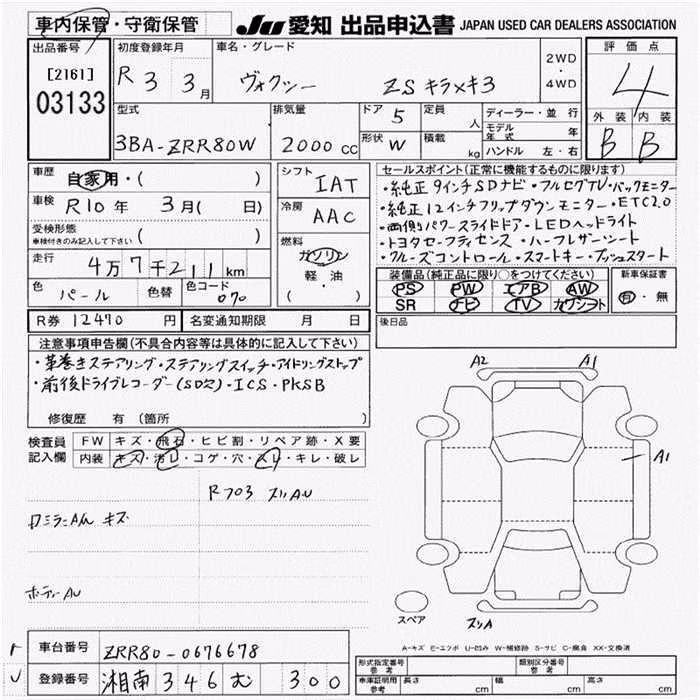 車内保管・守衛保管 JU 愛知 出品申込書 JAPAN USED CAR DEALERS ASSOCIATION
出品番号 初度登録年月 車名・グレード 2WD・4WD 評価点
[2161] R 3 3月 ヴォクシー ZS キラメキ3 4
03133 外装 内装
型式 排気量 ドア 5 定員 人 ディーラー・並行 B B
3BA-ZRR80W 2000 CC 形状 W 積載 kg モデル年式 年
ハンドル 左・右
車歴 自家用・( ) シフト IAT セールスポイント(正常に機能するものに限ります)
車検 R10年 3月( 日) 冷房 AAC ・純正9インチSDナビ・フルセグTV・バックモニター
・純正12インチフリップダウンモニター・ETC2.0
受検形態 ( ) ・両側パワースライドドア・LEDヘッドライト
車検付きのみ記入して下さい 燃料 ガソリン ・トヨタセーフティセンス・ハーフレザーシート
走行 4万7千211km 軽・油 ・クルーズコントロール・スマートキー・プッシュスタート
色 パール 色替 色コード 070 ( ) 装備品(純正品に限り○をつけてください) 新車保証書
PS PW エアB AW 有・無
SR ナビ TV カワシート
R券 12470 円 名変通知期限 月 日 後日品
注意事項申告欄(不具合内容等は具体的に記入して下さい)
・革巻きステアリング・ステアリングスイッチ・アイドリングストップ
・前後ドライブレコーダー(SD欠)・ICS・PKSB
修復歴 有(箇所 )
A2 A1
検査員記入欄 FW キズ・飛石・ヒビ割・リペア跡・X要
内装 キズ・汚レ・コゲ・穴・スレ・キレ・破レ
A1
R703 スリAU
キズ
ボディーAU
スペア スリA
A-キズ E-エクボ U-凹み W-補修跡 S-サビ C-腐食 XX-交換済
車台番号 ZRR80-0676678 形式指定番号 参考 類別区分番号 参考
登録番号 湘南 346 む 300 車庫証明用参考 長さ cm 幅 cm 高さ cm